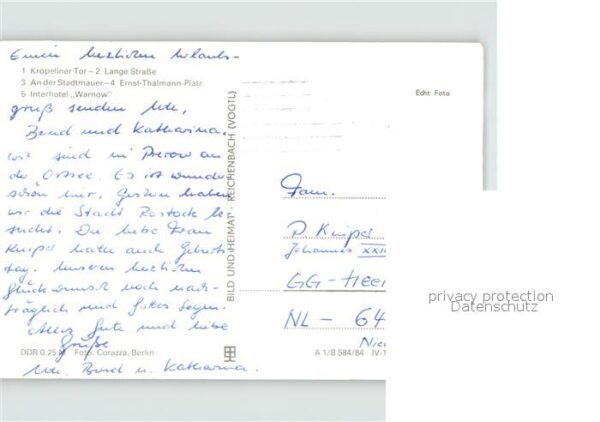 Einen herzlichen Urlaubs-
1 Kröpeliner Tor – 2 Lange Straße
3 An der Stadtmauer – 4 Ernst-Thälmann-Platz
5 Interhotel „Warnow"
gruß senden Ute,
Bernd und Katharina,
wir sind in Prerow an
der Ostsee. Es ist wunder
schön hier. Gestern haben
wir die Stadt Rostock be
sucht. Du liebe Frau
Knipel hatte auch Geburts
tag. Unseren herzlichen
Glückwunsch noch nach-
träglich und Gottes Segen.
Alles Gute und liebe
Grüße
Ute, Bernd u. Katharina.
DDR 0,25 M Foto: Corazza, Berlin
BILD UND HEIMAT · REICHENBACH (VOGTL)
Echt Foto
Fam.
P. Knipel
Johannes XXIII
GG - Heer
NL - 64
Nied
A 1/B 584/84 IV-1
privacy protection
Datenschutz